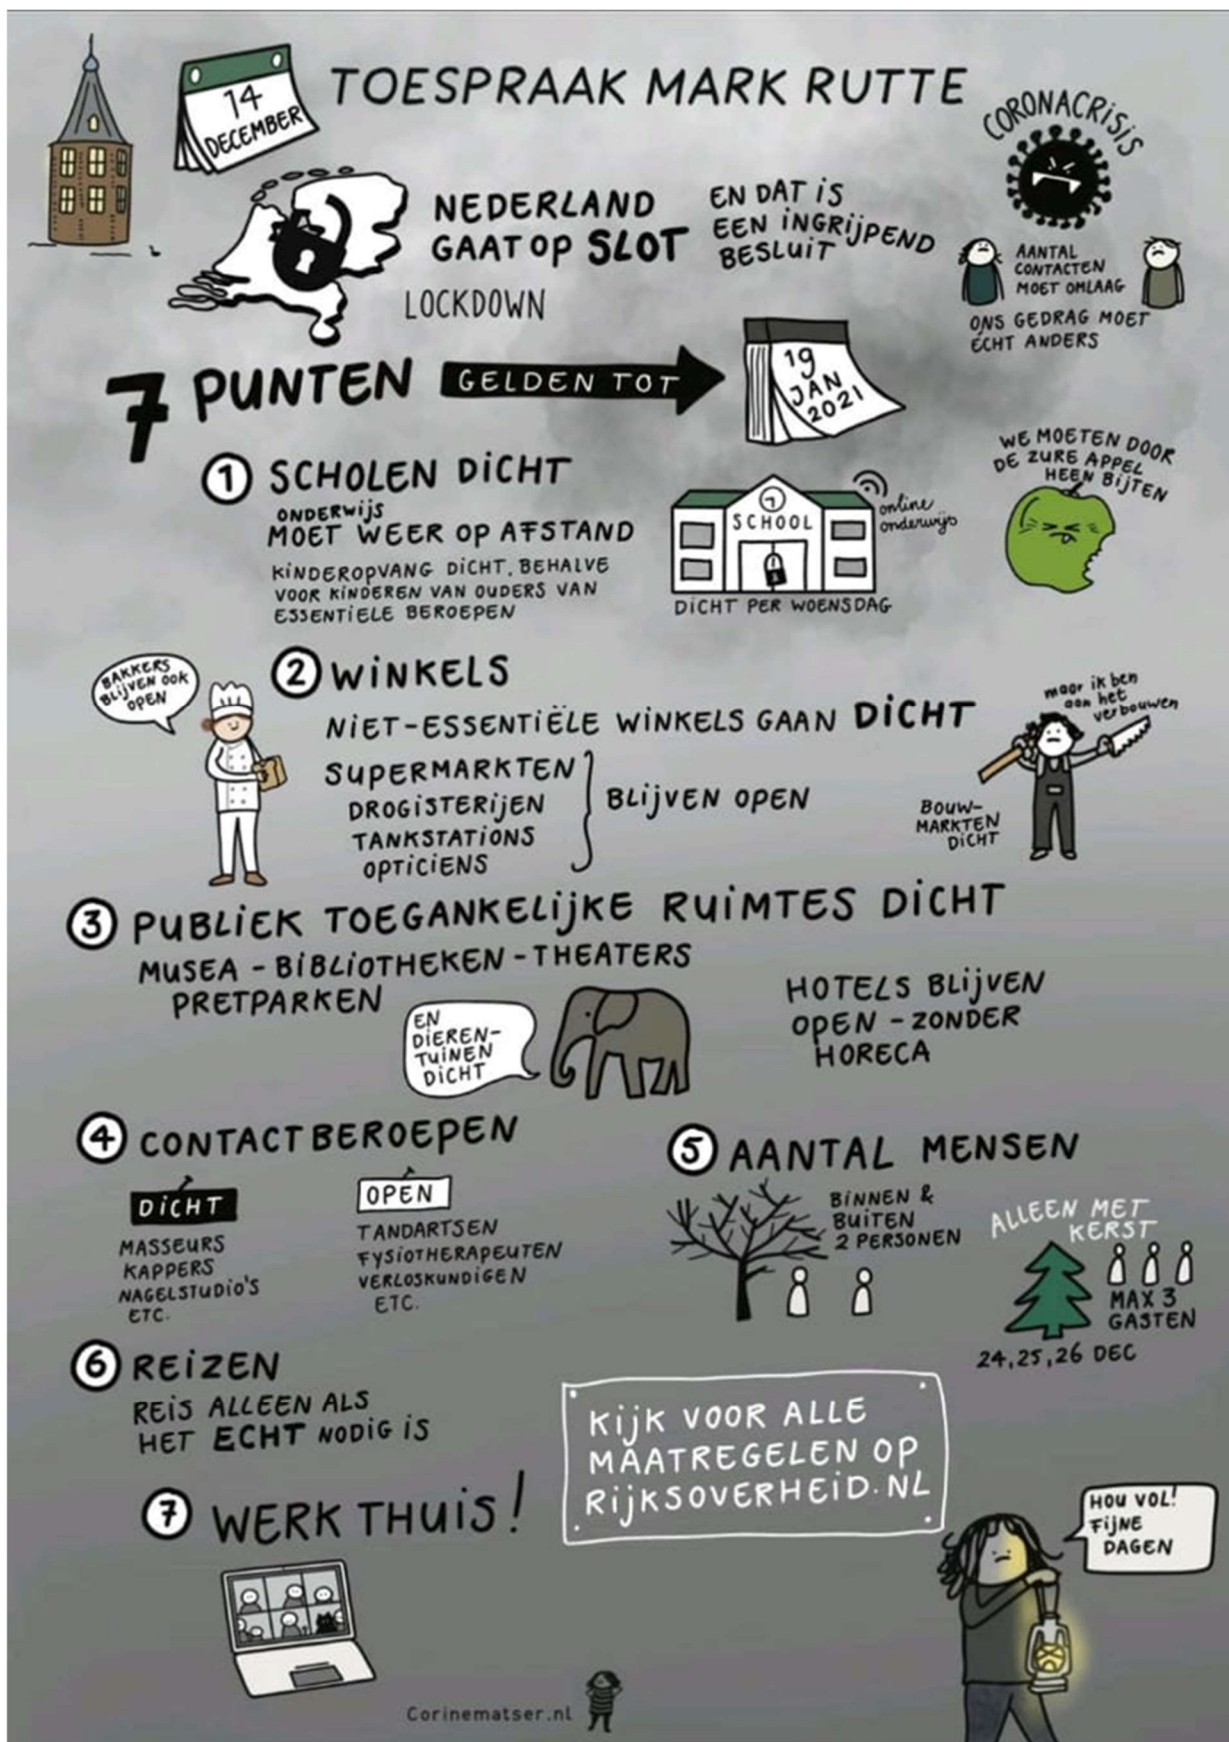 14
DECEMBER
TOESPRAAK MARK RUTTE
CORONACRISIS
NEDERLAND
GAAT OP SLOT
EN DAT IS
EEN INGRIJPEND
BESLUIT
LOCKDOWN
AANTAL
CONTACTEN
MOET OMLAAG
ONS GEDRAG MOET
ÉCHT ANDERS
7 PUNTEN
GELDEN TOT
19
JAN
2021
1 SCHOLEN DICHT
ONDERWIJS
MOET WEER OP AFSTAND
KINDEROPVANG DICHT, BEHALVE
VOOR KINDEREN VAN OUDERS VAN
ESSENTIELE BEROEPEN
SCHOOL
online
onderwijs
DICHT PER WOENSDAG
WE MOETEN DOOR
DE ZURE APPEL
HEEN BIJTEN
BAKKERS
BLIJVEN OOK
OPEN
2 WINKELS
NIET-ESSENTIËLE WINKELS GAAN DICHT
SUPERMARKTEN
DROGISTERIJEN
TANKSTATIONS
OPTICIENS
BLIJVEN OPEN
maar ik ben
aan het
verbouwen
BOUW-
MARKTEN
DICHT
3 PUBLIEK TOEGANKELIJKE RUIMTES DICHT
MUSEA - BIBLIOTHEKEN - THEATERS
PRETPARKEN
EN
DIEREN-
TUINEN
DICHT
HOTELS BLIJVEN
OPEN - ZONDER
HORECA
4 CONTACTBEROEPEN
DICHT
MASSEURS
KAPPERS
NAGELSTUDIO'S
ETC.
OPEN
TANDARTSEN
FYSIOTHERAPEUTEN
VERLOSKUNDIGEN
ETC.
5 AANTAL MENSEN
BINNEN &
BUITEN
2 PERSONEN
ALLEEN MET
KERST
MAX 3
GASTEN
24, 25, 26 DEC
6 REIZEN
REIS ALLEEN ALS
HET ECHT NODIG IS
KIJK VOOR ALLE
MAATREGELEN OP
RIJKSOVERHEID.NL
7 WERK THUIS!
HOU VOL!
FIJNE
DAGEN
Corinematser.nl